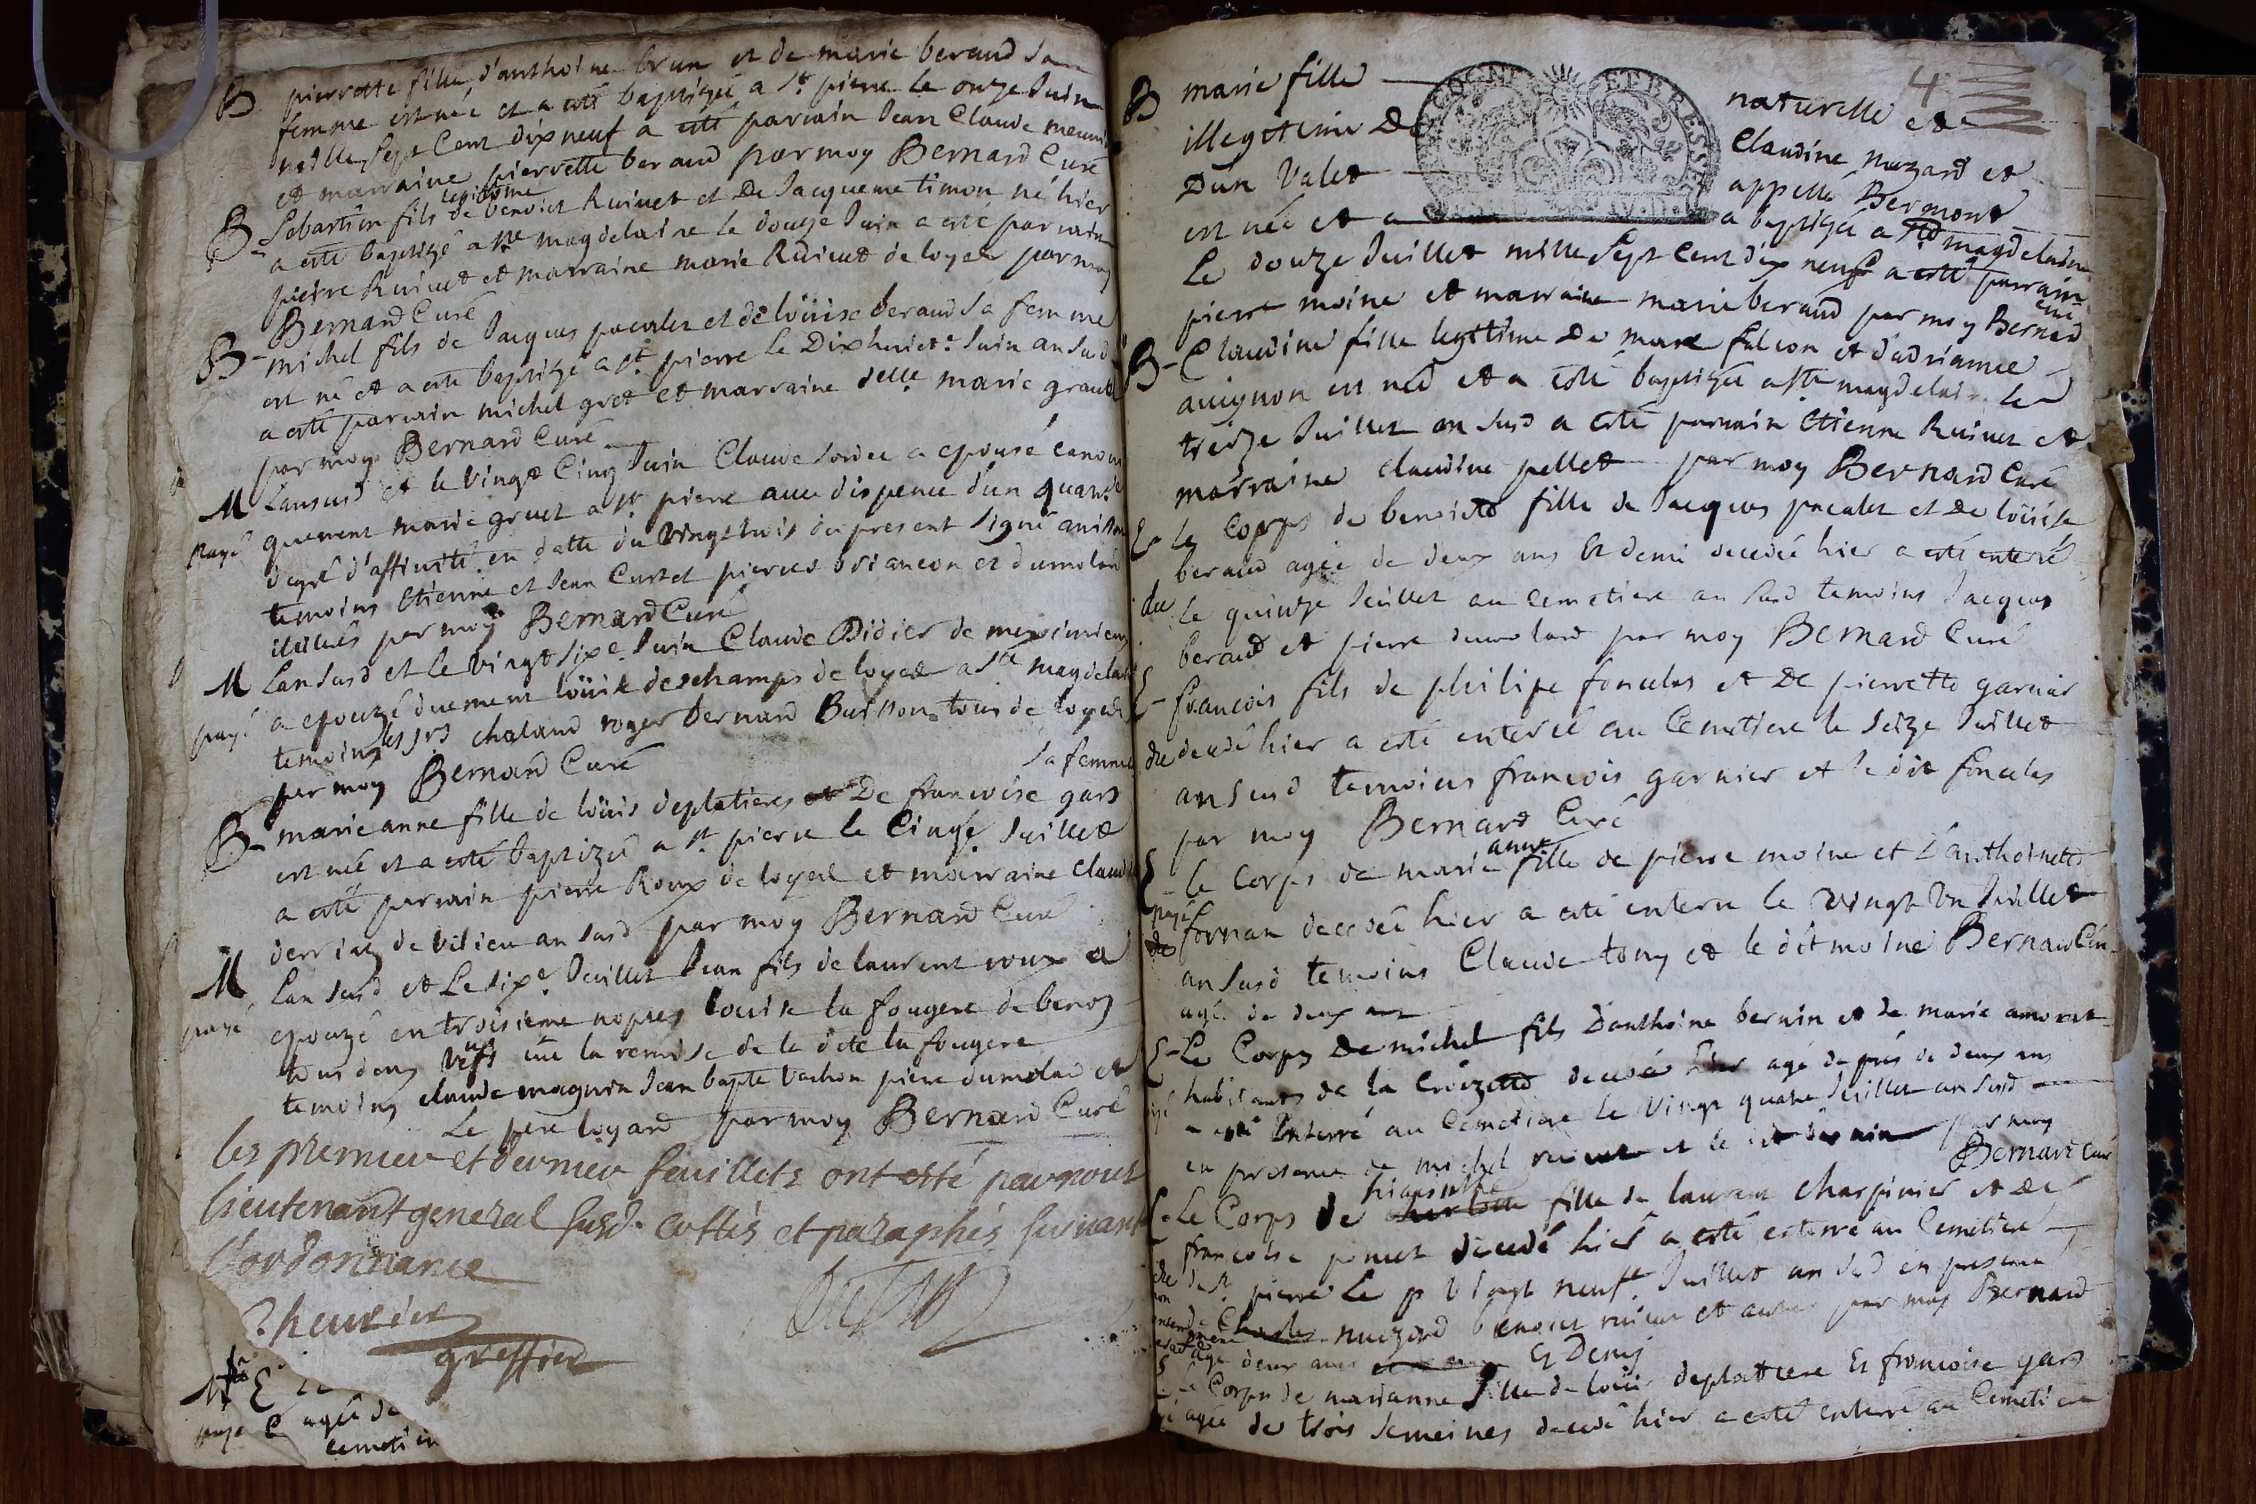 B pierrette fille d'anthoine brun et de marie beraud sa
femme est née et a esté baptizée a st pierre le onze Juin
mille sept cent dix neuf a esté parrain Jean Claude
et marraine pierrette beraud par moy Bernard Curé
legitime
B Sebastien fils de benoict Ruivet et De Jacqueme timon né hier
a esté baptizé a ste magdelaine le douze Juin a esté parrain
pierre Ruivet et marraine marie Ruivet de loyes par moy
Bernard Curé
B michel fils de Jacques pacalet et de loüise beraud sa femme
est né et a esté baptizé a st pierre le Dixhuict.e Juin an susd
a esté parrain michel gret et marraine delle marie
par moy Bernard Curé
M Lansusd et le vingt Cinq Juin Claude a epousé
payé quement marie gruet a st pierre avec dispence d'un
degré d'affinité en datte du vingt huit du present signé
temoins Etienne et Jean Curtet pierres briancon et dumolar
par moy Bernard Curé
M Lansusd et le vingt sixe Juin Claude Didier de meximieux
payé a epouzé duement loüise deschamps de loyes a ste magdelaine
temoins les srs chaland roger bernard Buisson tous de loyes
par moy Bernard Curé
sa femme
B marie anne fille de loüis deplatieres et De francoise gars
est née et a esté baptizée a st pierre le Cinqe Juillet
a esté parrain pierre Roux de loyes et marraine
de vilieu an susd par moy Bernard Curé
M Lan susd et Le sixe Juillet Jean fils de laurent roux a
payé epouzé en troisieme nopces louise la fougere de
tous deux vefs la remise de la dite la fougere
temoins claude magnin Jean bapte vachon pierre dumolar et
Le pere loyard par moy Bernard Curé
les premier et dernier feuillets ont esté par nous
lieutenant general susd. cottés et paraphés suivant
l'ordonnance
greffier
payé agée de
cemetier
4
B marie fille naturelle et
illegitime De Claudine nuzard et
D'un Valet appellé Bermont
est née et a a baptizée a ste magdelaine
Le douze Juillet mille sept cent dix neuf a esté parrain
pierre moine et marraine marie beraud par moy Bernard
Curé
B Claudine fille legitime De marc falcon et d'adrianne
avignon est née et a esté baptizée a ste magdelaine le
treize Juillet an susd a esté parrain Etienne Ruivet et
marraine claudine pellet par moy Bernard Curé
E le Corps de benoicte fille de Jacques pacalet et De loüise
beraud agée de deux ans Et demi decedée hier a esté enterré
due le quinze Juillet au cemetiere an susd temoins Jacques
beraud et pierre dumolard par moy Bernard Curé
E francois fils de philipe et De pierrette garnier
due decedé hier a esté enterré au Cemetiere le seize Juillet
an susd temoins francois garnier et le dit
par moy Bernard Curé
anne
E le Corps de marie fille de pierre moine et d'anthoinette
payé fornan decedée hier a esté enterré le vingt Un Juillet
an susd temoins Claude tony et le dit moine Bernard Curé
agée de deux ans
E Le Corps De michel fils D'anthoine bernin et de marie
habitants de la Croizette decedé hier agé de prés de deux ans
a esté Enterré au Cemetiere Le vingt quatre Juillet an susd
en presence de michel et le dit bernin par moy
Bernard Curé
E Le Corps de fille de laurent charpinier et De
francoise poncet decedé hier a esté enterré au Cemetiere
due de st pierre Le vingt neufe Juillet an susd en presence
nuizard benoict ruivet et autres par moy Bernard
agé deux ans
E Le Corps de marianne fille de loüis deplattiere Et francoise gars
agée de trois semeines decedé hier a esté enterré au Cemetiere